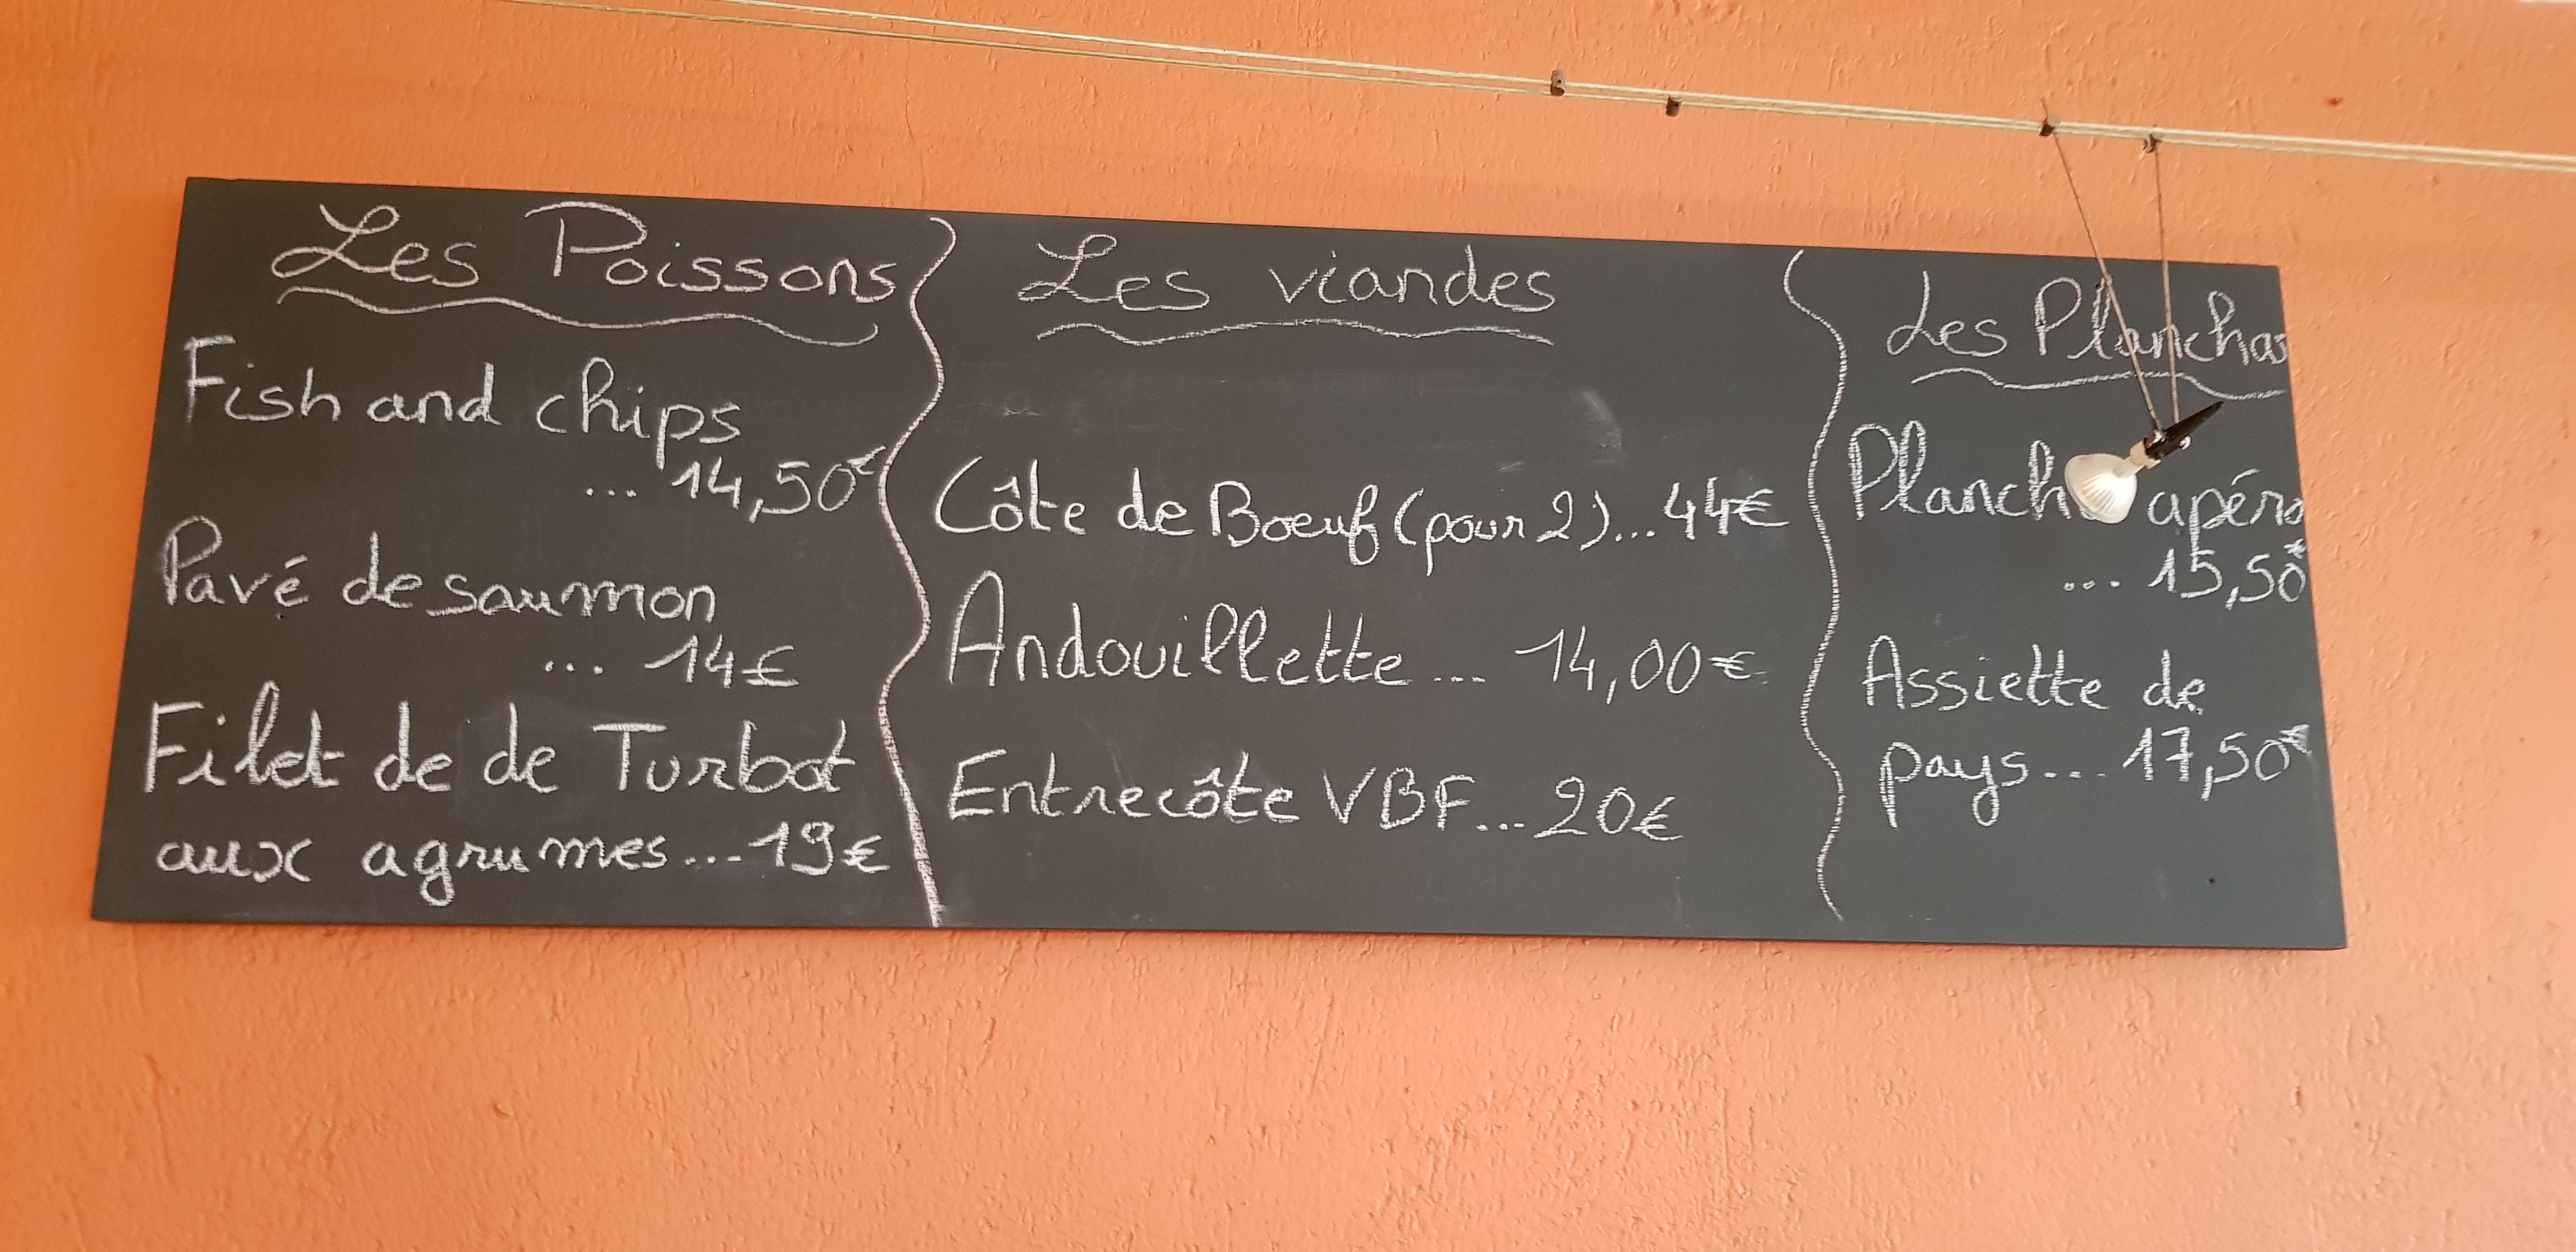 Les Poissons
Fish and chips
... 14,50€
Pavé de saumon
... 14€
Filet de de Turbot
aux agrumes...19€
Les viandes
Côte de Boeuf (pour 2)...44€
Andouillette... 14,00€
Entrecôte VBF...20€
Les Planchas
apéro
... 15,50€
Assiette de
pays... 17,50€